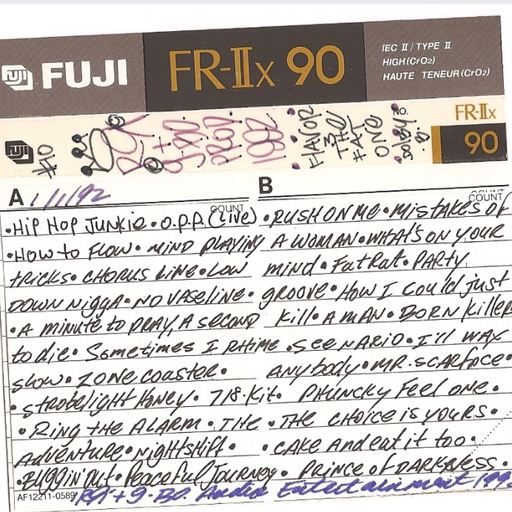 FUJI FR-IIx 90 IEC II/TYPE II
HIGH(CrO2)
HAUTE TENEUR(CrO2)
FUJI #10 1992 FLAVOR IN THE FAT ONE FR-IIx 90
A 1/1/92 COUNT
• HIP HOP JUNKIE • O.P.P. (LIVE)
• HOW TO FLOW • MIND PLAYING
TRICKS • CHORUS LINE • LOW
DOWN NIGGA • NO VASELINE •
• A MINUTE TO PRAY A SECOND
to die • Sometimes I RHIME
SLOW • ZONE COASTER •
• STROBELIGHT HONEY • 718 • Kit •
• RING THE ALARM • THE
ADVENTURE • NIGHTSHIFT •
• BUGGIN' OUT • Peaceful Journey •
B COUNT
• RUSH ON ME • MISTAKES OF
A WOMAN • WHAT'S ON YOUR
MIND • FatRat • PARTY
groove • HOW I COULD JUST
Kill • A MAN • BORN KILLER
• SCENARIO • I'll WAX
ANYbody • MR. SCARFACE •
PHUNCKY FEEL ONE •
• THE CHOICE IS YOURS •
• CAKE AND eat it too •
• PRINCE OF DARKNESS •
AF12211-0589 + 9 • Audio Entertainment 199